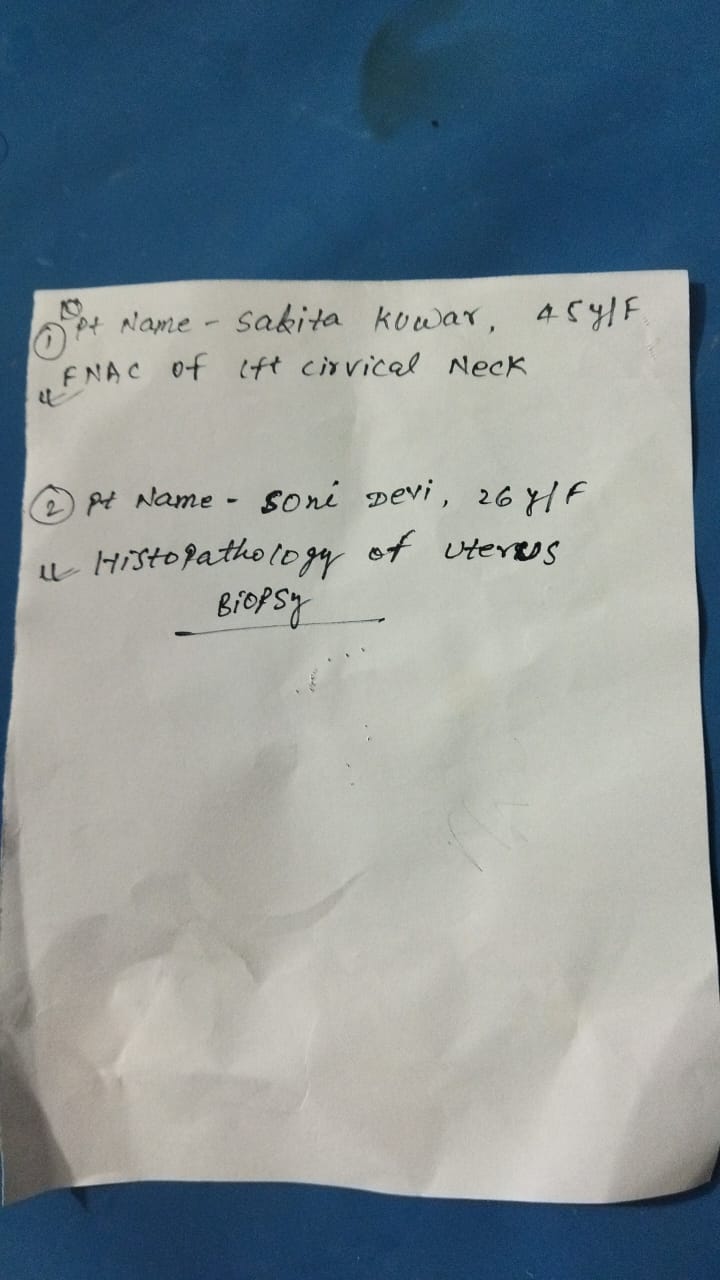 ① Pt Name - Sabita Kuwar, 45y/F
FNAC of lft cirvical Neck
② Pt Name - Soni Devi, 26y/F
Histopathology of Uterus
Biopsy